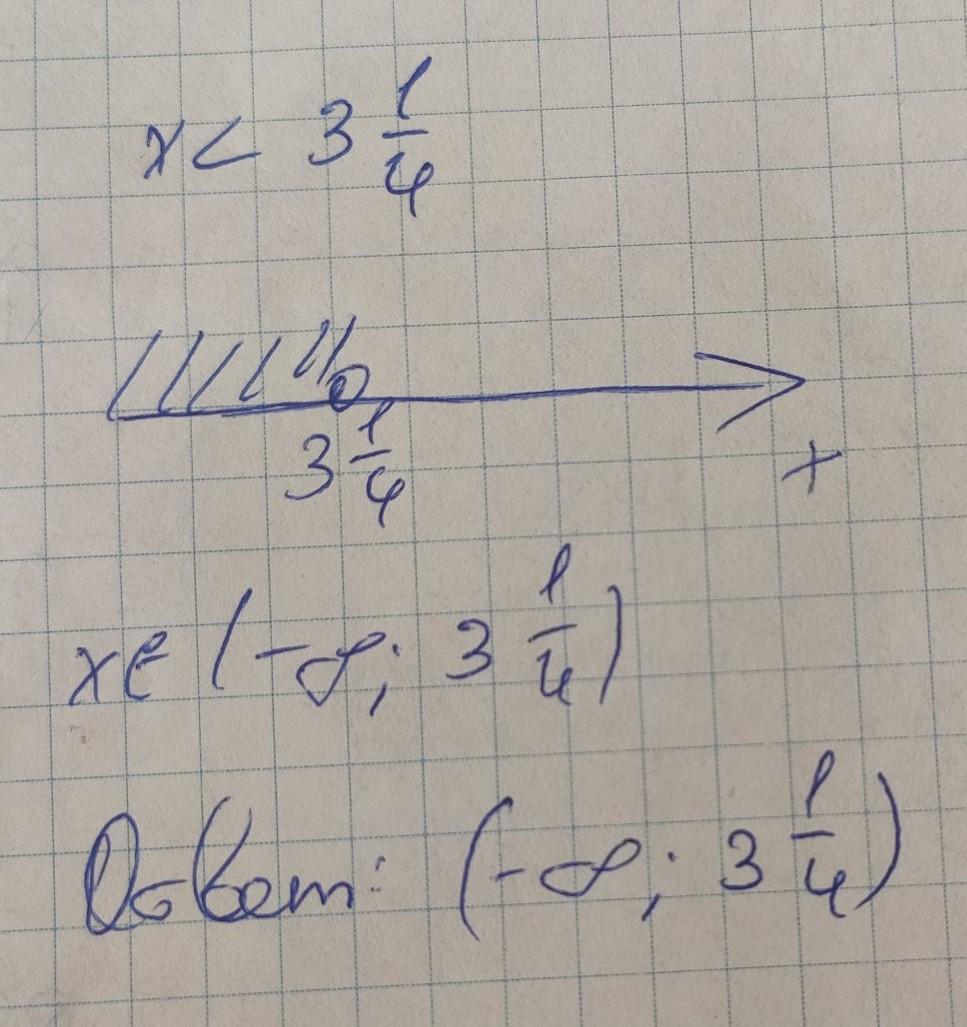 x < 3 1/4
3 1/4
x
x ∈ (-∞; 3 1/4)
Ответ: (-∞; 3 1/4)